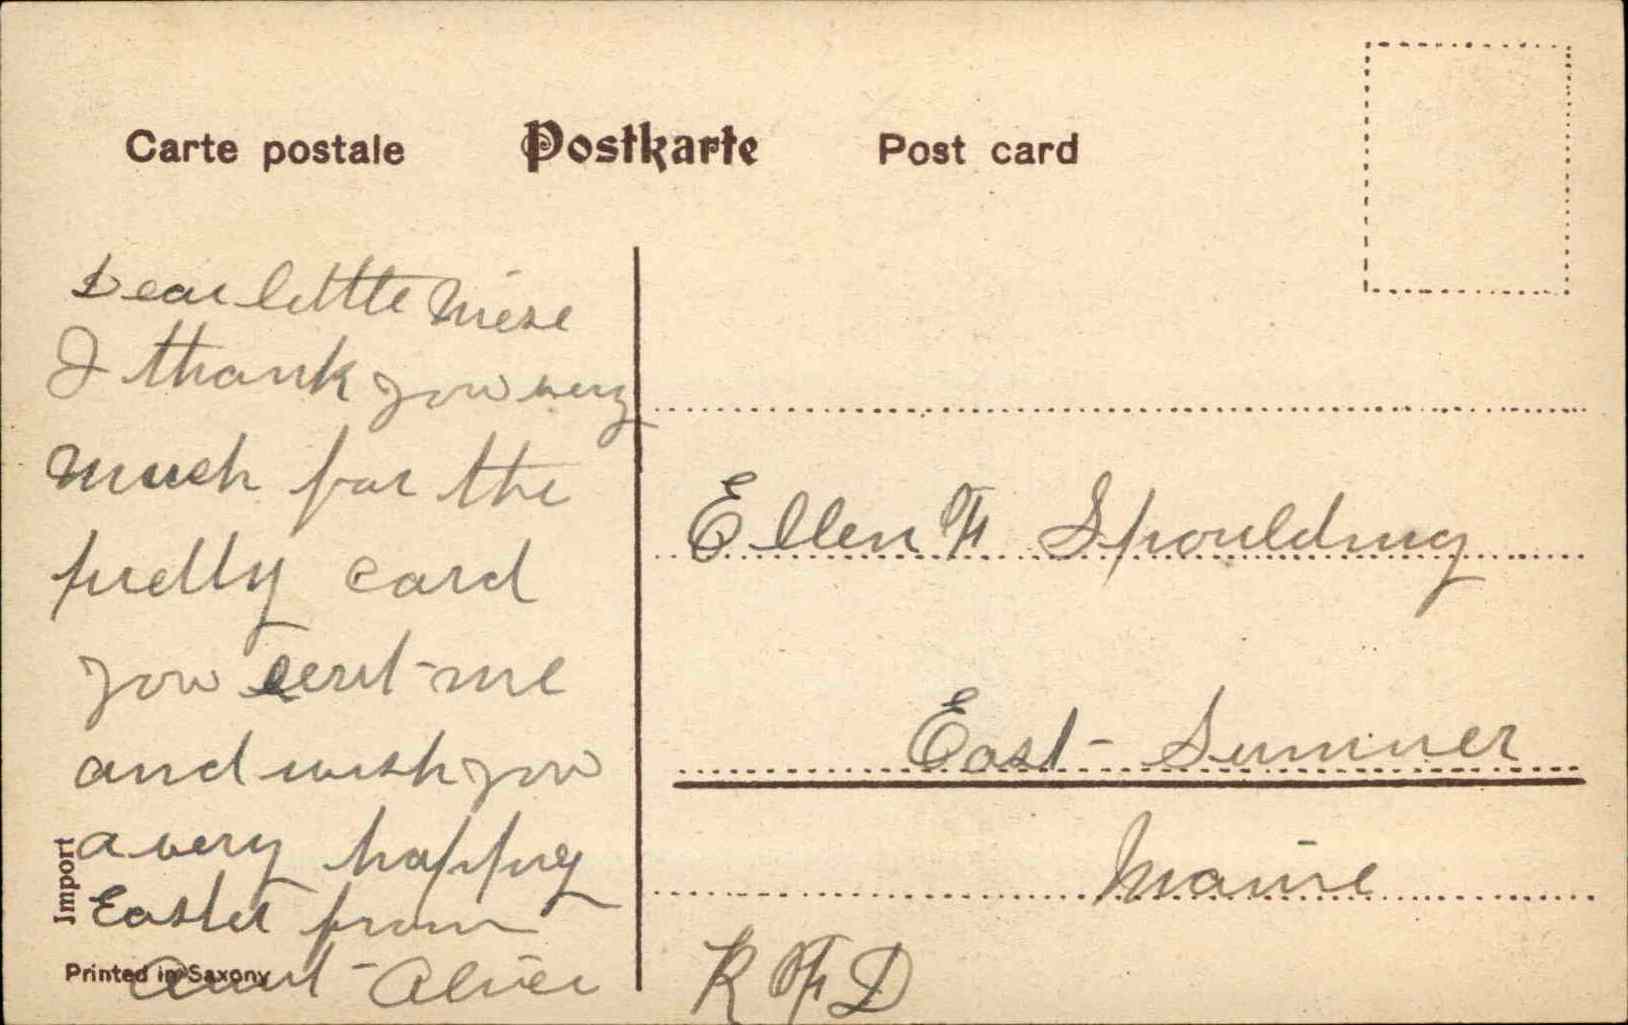 Carte postale Postkarte Post card
Dear little niese
I thank you very
much for the
pretty card
you sent me
and wish you
a very happy
Easter from
Aunt
Import
Printed in Saxony
Ellen F Spoulding
East Sumner
Maine
R F D